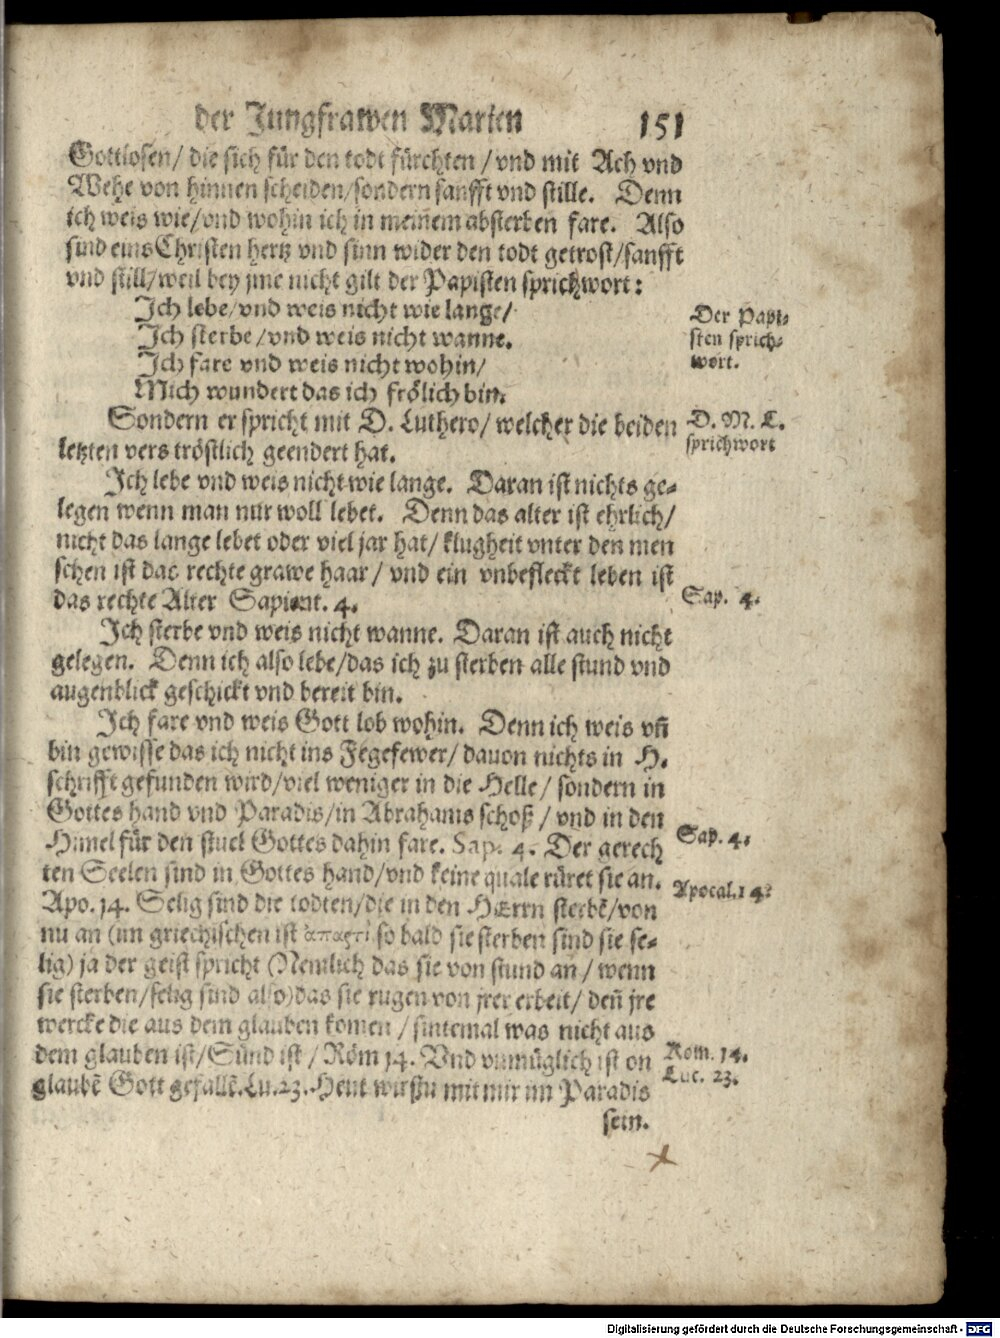 der Jungfrawen Marien 151
Gottlosen/ die sich für den todt fürchten / vnd mit Ach vnd
Wehe von hinnen scheiden/sondern sanfft vnd stille. Denn
ich weis wie/vnd wohin ich in meinem absterben fare. Also
sind eins Christen hertz vnd sinn wider den todt getrost/sanfft
vnd still/weil bey jme nicht gilt der Papisten sprichwort:
Ich lebe/vnd weis nicht wie lange/
Ich sterbe /vnd weis nicht wanne.
Ich fare vnd weis nicht wohin/
Mich wundert das ich frölich bin.
Der Papi-
sten sprich-
wort.
Sondern er spricht mit D. Luthero/ welcher die beiden
letzten vers tröstlich geendert hat.
D. M. L.
sprichwort
Ich lebe vnd weis nicht wie lange. Daran ist nichts ge-
legen wenn man nur woll lebet. Denn das alter ist ehrlich/
nicht das lange lebet oder viel jar hat/ klugheit vnter den men
schen ist das rechte grawe haar / vnd ein vnbefleckt leben ist
das rechte Alter Sapient. 4.
Sap. 4.
Ich sterbe vnd weis nicht wanne. Daran ist auch nicht
gelegen. Denn ich also lebe/das ich zu sterben alle stund vnd
augenblick geschickt vnd bereit bin.
Ich fare vnd weis Gott lob wohin. Denn ich weis vñ
bin gewisse das ich nicht ins Fegefewer/ dauon nichts in H.
schrifft gefunden wird/viel weniger in die Helle/ sondern in
Gottes hand vnd Paradis/in Abrahams schoß / vnd in den
Himel für den stuel Gottes dahin fare. Sap. 4. Der gerech
ten Seelen sind in Gottes hand/vnd keine quale rüret sie an.
Sap. 4.
Apo. 14. Selig sind die todten/die in den HErrn sterbẽ/von
Apocal. 14.
nu an (im griechischen ist ἀπαρτί so bald sie sterben sind sie se-
lig) ja der geist spricht (Nemlich das sie von stund an / wenn
sie sterben/selig sind also)das sie rugen von jrer erbeit/ deñ jre
wercke die aus dem glauben komen / sintemal was nicht aus
dem glauben ist/Sünd ist / Röm 14. Vnd vnmüglich ist on
glaubẽ Gott gefallẽ. Lu. 23. Heut wirstu mit mir im Paradis
Rom. 14.
Luc. 23.
sein.
Digitalisierung gefördert durch die Deutsche Forschungsgemeinschaft - DFG